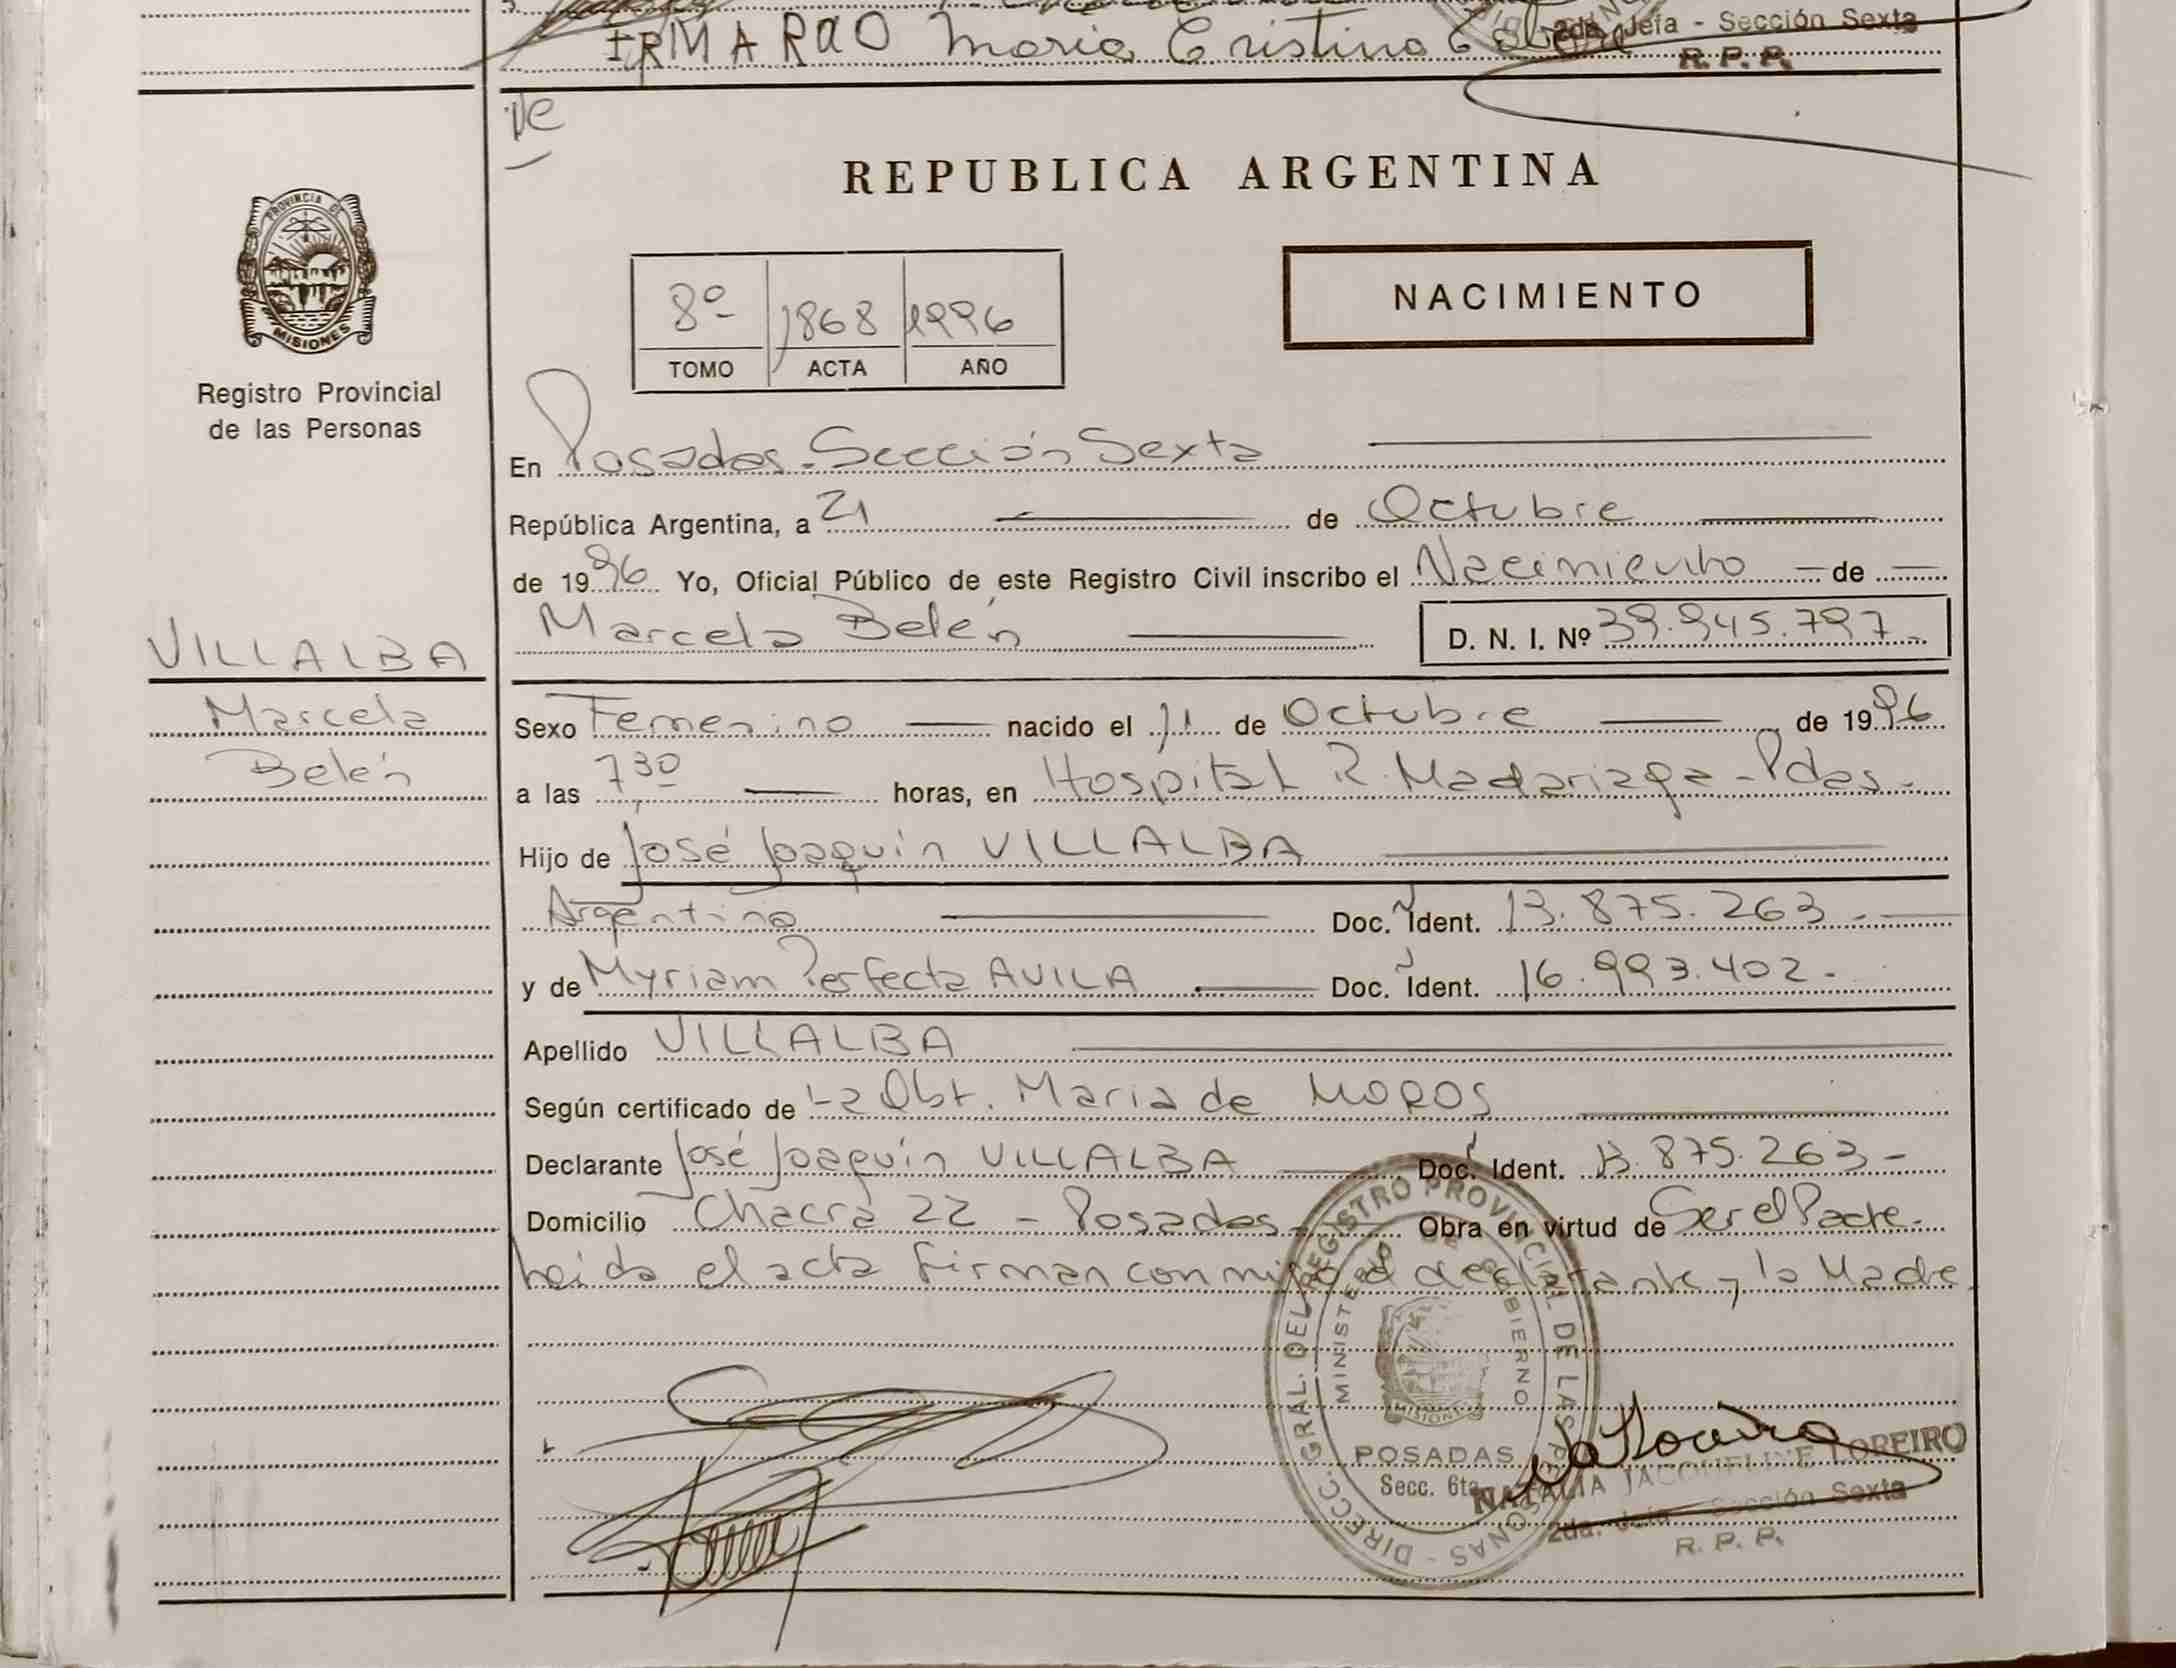 FIRMARÁO Maria Cristina
2da. Jefa - Sección Sexta
R. P. P.
REPUBLICA ARGENTINA
PROVINCIA DE
MISIONES
Registro Provincial
de las Personas
8º 1868 1996
TOMO ACTA AÑO
NACIMIENTO
En Posadas. Sección Sexta
República Argentina, a 21 de Octubre
de 1996 Yo, Oficial Público de este Registro Civil inscribo el Nacimiento de
Marcela Belén D. N. I. Nº 39.945.797
VILLALBA
Marcela
Belén
Sexo Femenino nacido el 11 de Octubre de 1996
a las 7,30 horas, en Hospital R. Madariaga - Pdas.
Hijo de José Joaquín VILLALBA
Argentino Doc. Ident. 13.875.263.
y de Myriam Perfecta AVILA Doc. Ident. 16.993.402.
Apellido VILLALBA
Según certificado de La Obt. Maria de MOROS
Declarante José Joaquín VILLALBA Doc. Ident. 13.875.263
Domicilio Chacra 22 - Posadas. Obra en virtud de Ser el Padre.
Leida el acta firman conmigo el declarante y la Madre
DIRECC. GRAL. DEL REGISTRO PROVINCIAL DE LAS PERSONAS
MINISTERIO DE GOBIERNO
MISIONES
POSADAS
Secc. 6ta.
NATALIA JACQUELINE LOREIRO
2da. Jefa - Sección Sexta
R. P. P.